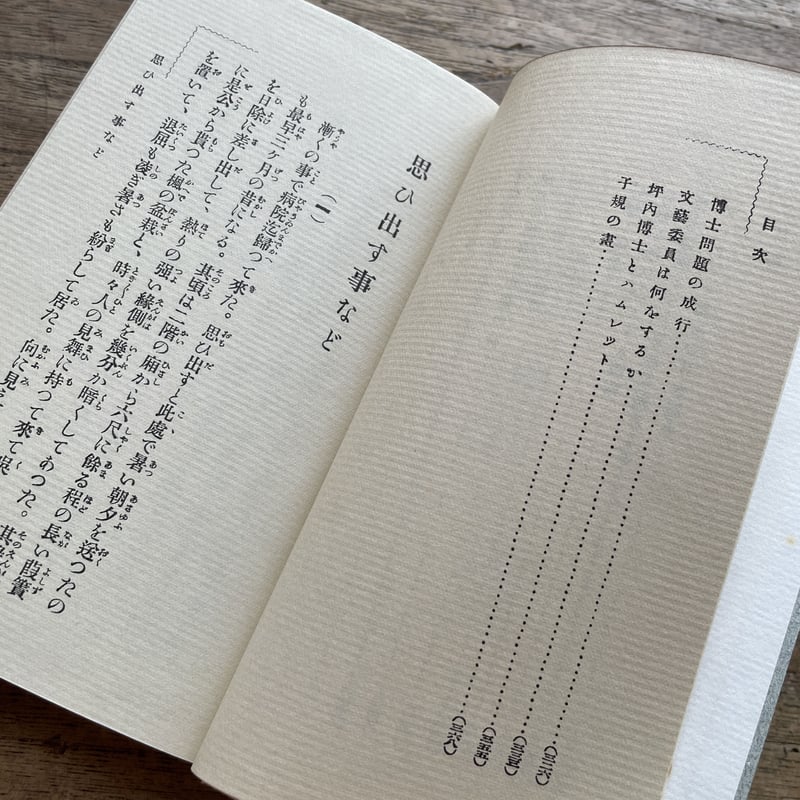 目次
博士問題の成行……(三二六)
文藝委員は何をするか……(三三五)
坪内博士とハムレット……(三五五)
子規の畫……(三六八)
思ひ出す事など
(一)
漸くの事で病院迄歸つて來た。思ひ出すと此處で暑い朝夕を送つたの
も最早三ケ月の昔になる。其頃は二階の廂から六尺に餘る程の長い葭簀
を日除に差し出して、熱りの強い緣側を幾分か暗くしてあつた。其
に是公から貰つた楓の盆栽と、時々人の見舞に持つて來て呉
を置いて、退屈も凌ぎ暑さも紛らして居た。向に見
思ひ出す事など